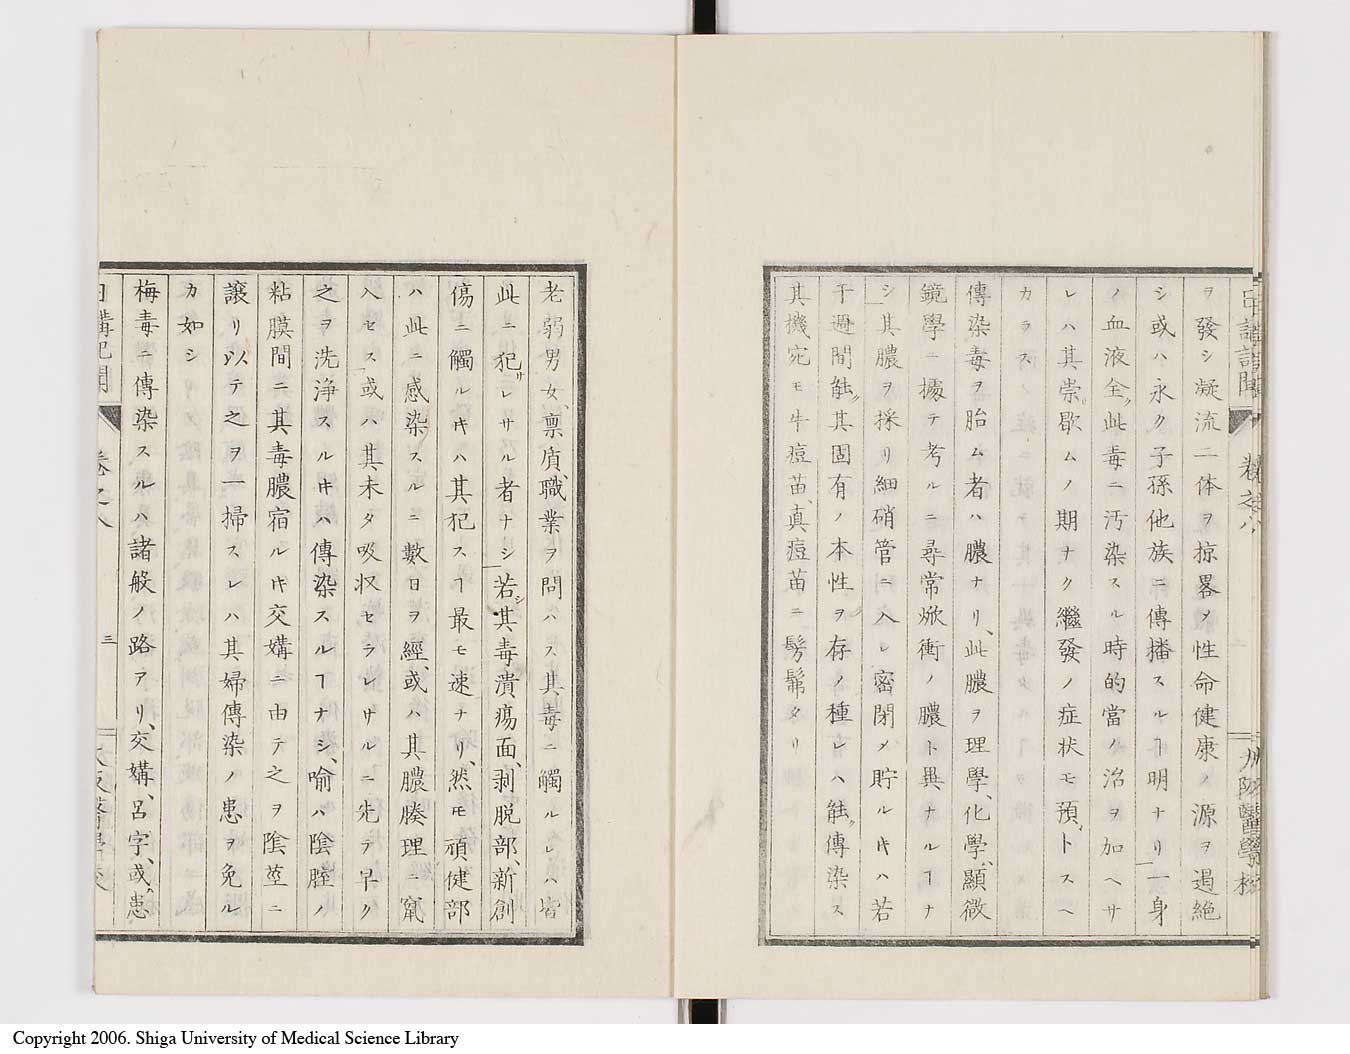 日講記聞 卷之八 大阪醫學校
ヲ發シ凝流一体ヲ掠畧メ性命健康ノ源ヲ遏絶
シ或ハ永ク子孫他族ニ傳播スルヿ明ナリ一身
ノ血液全ク此毒ニ汚染スル時的當ノ治ヲ加ヘサ
レハ其祟歇ムノ期ナク繼發ノ症状モ預トスヘ
カラス
傳染毒ヲ胎ム者ハ膿ナリ、此膿ヲ理學、化學、顯微
鏡學ニ據テ考ルニ尋常焮衝ノ膿ト異ナルヿナ
シ其膿ヲ採リ細硝管ニ入レ密閉メ貯ルキハ若
干過間能ク其固有ノ本性ヲ存ノ種レハ能ク傳染ス
其機宛モ牛痘苗、真痘苗ニ髣髴タリ
老弱男女、禀質、職業ヲ問ハス其毒ニ觸ルレハ皆
此ニ犯サレサル者ナシ若シ其毒潰瘍面、剥脱部、新創
傷ニ觸ルキハ其犯スヿ最モ速ナリ、然モ頑健部
ハ此ニ感染スルニ數日ヲ經、或ハ其膿腠理ニ竄
入セス或ハ其未タ吸収セラレサルニ先テ早ク
之ヲ洗浄スルキハ傳染スルヿナシ、喻ハ陰腟ノ
粘膜間ニ其毒膿宿ルキ交媾ニ由テ之ヲ陰莖ニ
譲リ以テ之ヲ一掃スレハ其婦傳染ノ患ヲ免ル
カ如シ
梅毒ニ傳染スルハ諸般ノ路アリ、交媾、呂字、或ハ患
日講記聞 卷之八 三 大阪醫學校